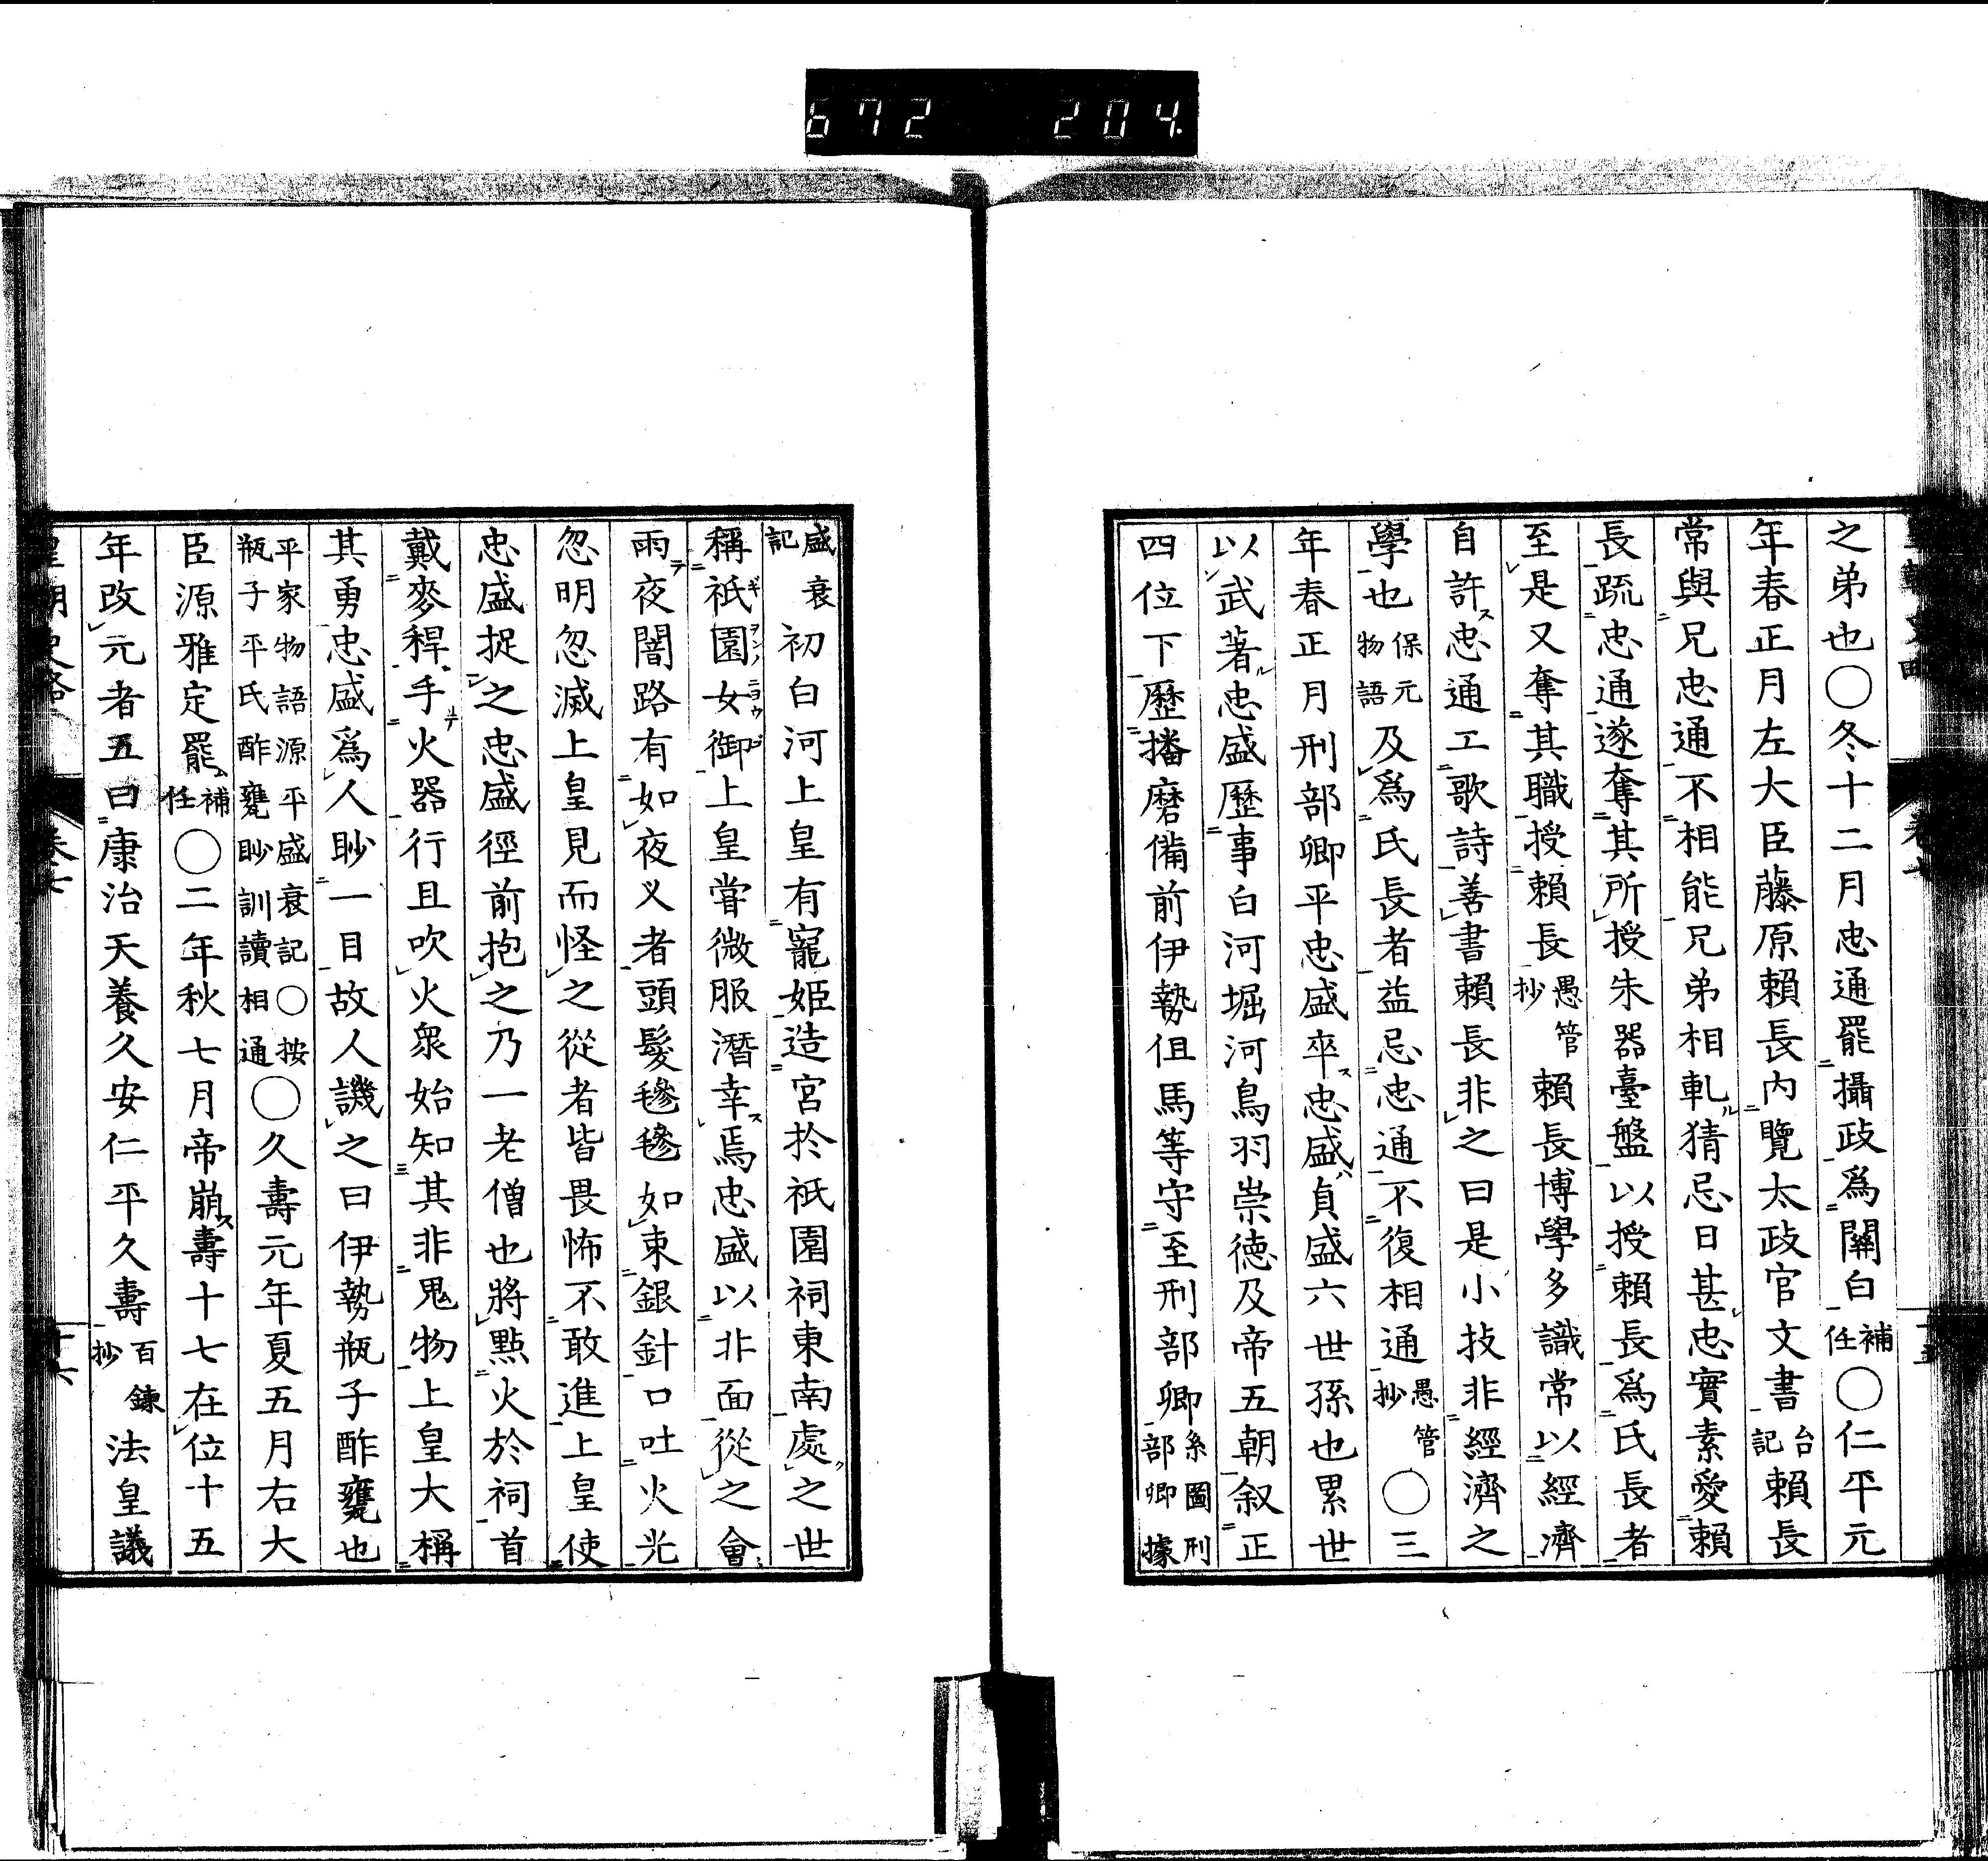 672 204.
之弟也〇冬十二月忠通罷攝政爲關白補任〇仁平元
年春正月左大臣藤原賴長内覽太政官文書台記賴長
常與兄忠通不相能兄弟相軋猜忌日甚忠實素愛賴
長疏忠通遂奪其所授朱器臺盤以授賴長爲氏長者
至是又奪其職授賴長愚管抄賴長博學多識常以經濟
自許忠通工歌詩善書賴長非之曰是小技非經濟之
學也保元物語及爲氏長者益忌忠通不復相通愚管抄〇三
年春正月刑部卿平忠盛卒忠盛貞盛六世孫也累世
以武著忠盛歷事白河堀河鳥羽崇徳及帝五朝叙正
四位下歷播磨備前伊勢但馬等守至刑部卿系圖刑部卿據
盛衰記初白河上皇有寵姬造宮於祇園祠東南處之世
稱祇園女御上皇嘗微服潛幸焉忠盛以非面從之會
雨夜闇路有如夜叉者頭髮毿毿如束銀針口吐火光
忽明忽滅上皇見而怪之從者皆畏怖不敢進上皇使
忠盛捉之忠盛徑前抱之乃一老僧也將點火於祠首
戴麥稈手火器行且吹火衆始知其非鬼物上皇大稱
其勇忠盛爲人眇一目故人譏之曰伊勢瓶子酢甕也
平家物語源平盛衰記〇按瓶子平氏酢甕眇訓讀相通〇久壽元年夏五月右大
臣源雅定罷補任〇二年秋七月帝崩壽十七在位十五
年改元者五曰康治天養久安仁平久壽百鍊抄法皇議
皇朝史略 卷七 十六